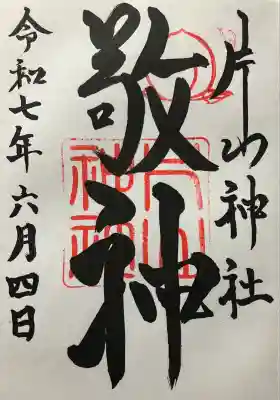 片山神社
敬神
令和七年六月四日
片山
神社